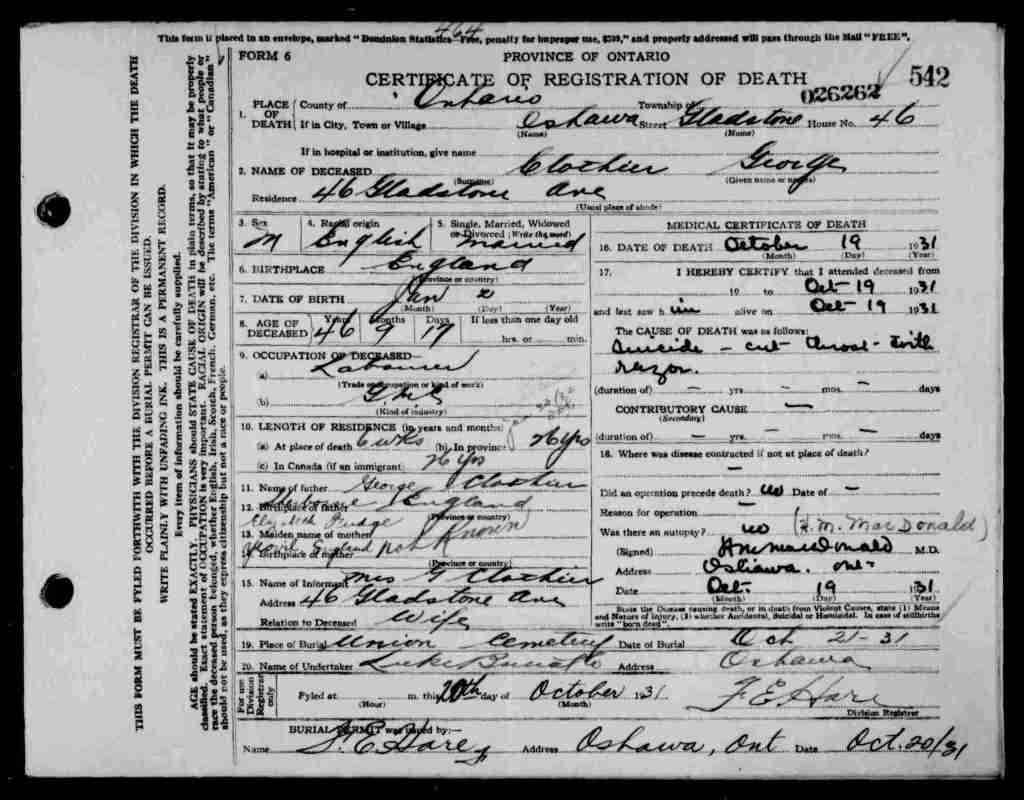 464
This form if placed in an envelope, marked "Dominion Statistics—Free, penalty for improper use, $300," and properly addressed will pass through the Mail "FREE".
FORM 6
PROVINCE OF ONTARIO
CERTIFICATE OF REGISTRATION OF DEATH
026262
542
1. PLACE OF DEATH County of Ontario Township of
If in City, Town or Village Oshawa Street Gladstone House No. 46
(Name) (Name)
If in hospital or institution, give name
2. NAME OF DECEASED Clothier George
(Surname) (Given name or names)
Residence 46 Gladstone Ave
(Usual place of abode)
3. Sex M
4. Racial origin English
5. Single, Married, Widowed or Divorced (Write the word) Married
6. BIRTHPLACE England
(Province or country)
7. DATE OF BIRTH Jan 2
(Month) (Day) (Year)
8. AGE OF DECEASED Years 46 Months 9 Days 17 If less than one day old
hrs. or min.
9. OCCUPATION OF DECEASED—
(a) Labourer
(Trade occupation or kind of work)
(b)
(Kind of industry)
10. LENGTH OF RESIDENCE (in years and months)
(a) At place of death 6 wks (b) In province 26 yrs
(c) In Canada (if an immigrant) 26 yrs
11. Name of father George Clothier
12. Birthplace of father England
(Province or country)
13. Maiden name of mother
not Known
14. Birthplace of mother England
(Province or country)
15. Name of Informant Mrs G Clothier
Address 46 Gladstone Ave
Relation to Deceased Wife
MEDICAL CERTIFICATE OF DEATH
16. DATE OF DEATH October 19 1931
(Month) (Day) (Year)
17. I HEREBY CERTIFY that I attended deceased from
19 to Oct 19 1931
and last saw h im alive on Oct 19 1931
The CAUSE OF DEATH was as follows:
Suicide – cut throat – with
razor.
(duration of) — yrs. — mos. — days
CONTRIBUTORY CAUSE —
(Secondary)
(duration of) — yrs. — mos. — days
18. Where was disease contracted if not at place of death?
—
Did an operation precede death? no Date of —
Reason for operation —
Was there an autopsy? no (H. M. MacDonald)
(Signed) HM MacDonald M.D.
Address Oshawa. Ont
Date Oct 19 1931
(Month) (Day) (Year)
State the Disease causing death, or in death from Violent Causes, state (1) Means and Nature of Injury, (2) whether Accidental, Suicidal or Homicidal. In case of stillbirths write "born dead".
19. Place of Burial Union Cemetery Date of Burial Oct 21-31
20. Name of Undertaker Luke Address Oshawa
For use Division Registrar only
Fyled at m. this 20th day of October 1931. F E Hare
(Hour) (Month) Division Registrar
BURIAL PERMIT was issued by:—
Name F. E. Hare Address Oshawa, Ont Date Oct. 20/31
THIS FORM MUST BE FYLED FORTHWITH WITH THE DIVISION REGISTRAR OF THE DIVISION IN WHICH THE DEATH
OCCURRED BEFORE A BURIAL PERMIT CAN BE ISSUED.
WRITE PLAINLY WITH UNFADING INK. THIS IS A PERMANENT RECORD.
Every item of information should be carefully supplied.
AGE should be stated EXACTLY. PHYSICIANS should STATE CAUSE OF DEATH in plain terms, so that it may be properly
classified. Exact statement of OCCUPATION is very important. RACIAL ORIGIN will be described by stating to what people or
race the deceased person belonged, whether English, Irish, Scotch, French, German, etc. The terms "American" or "Canadian"
should not be used, as they express citizenship but not a race or people.